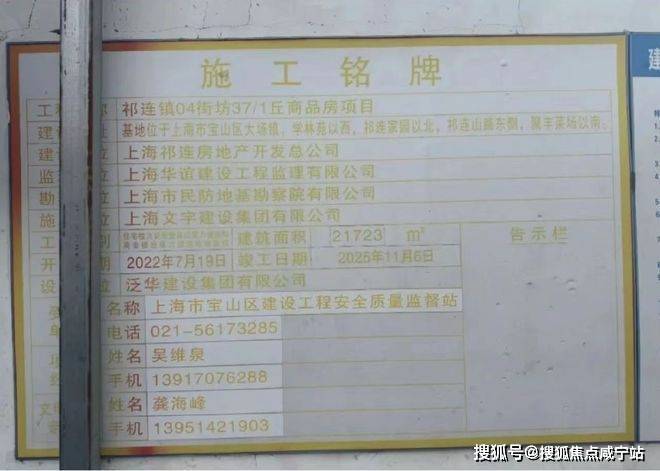 施工铭牌
建
工 称 祁连镇04街坊37/1丘商品房项目
建 址 基地位于上海市宝山区大场镇，学林苑以西，祁连家园以北，祁连山路东侧，聚丰菜场以南。
建 位 上海祁连房地产开发总公司
监 位 上海华谊建设工程监理有限公司
勘 位 上海市民防地基勘察院有限公司
施 位 上海文宇建设集团有限公司
工 别 建筑面积 21723 m² 告示栏
开 期 2022年7月19日 竣工日期 2025年11月6日
设 位 泛华建设集团有限公司
名称 上海市宝山区建设工程安全质量监督站
单 电话 021-56173285
项 姓名 吴维泉
经 手机 13917076288
文 姓名 龚海峰
手机 13951421903
搜狐号@搜狐焦点咸宁站